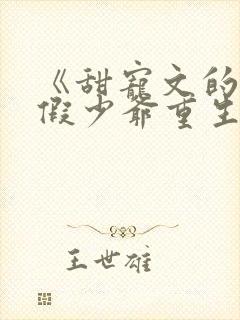 《甜宠文的
假少爷重生
王世雄